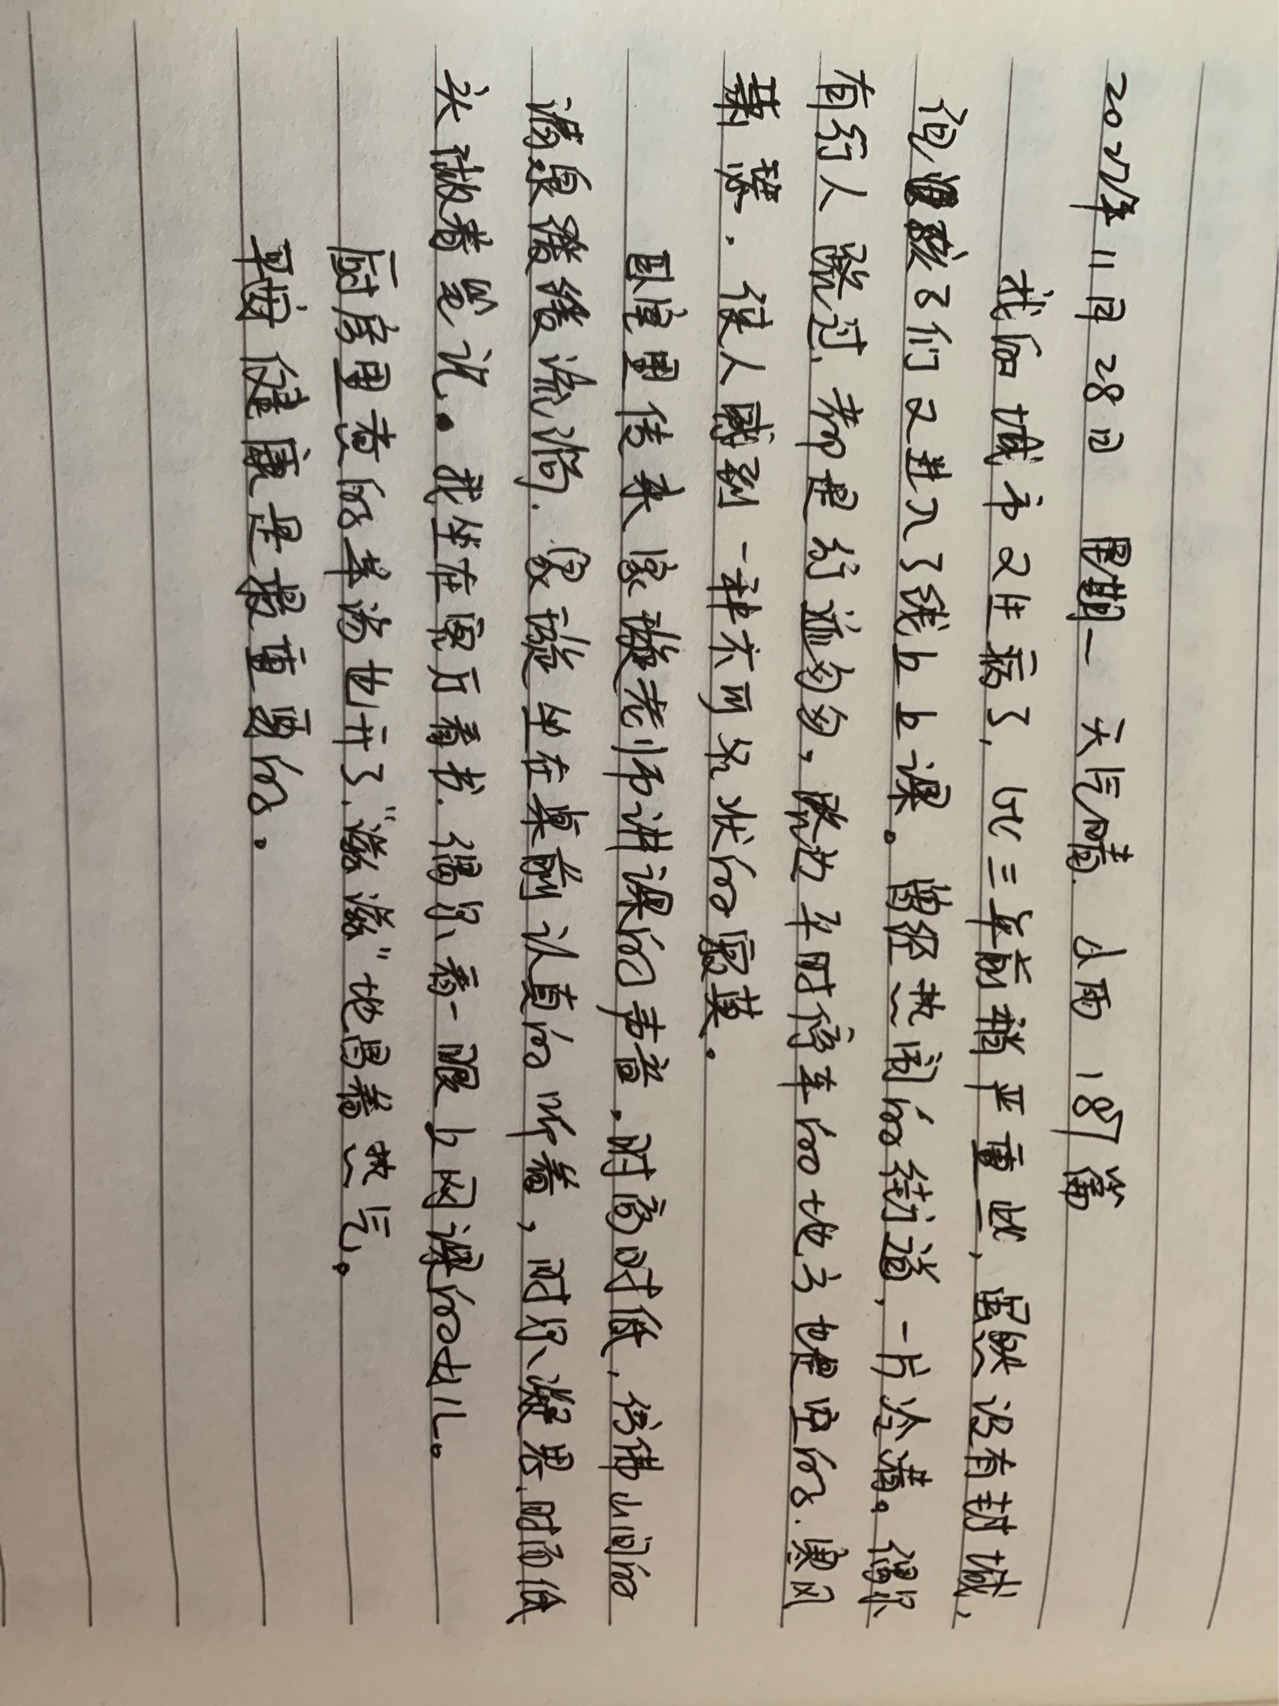 2022年11月28日 星期一 天气晴 大雨 187篇
我的城市又生病了,比三年前稍严重些,虽然没有封城,
但孩子们又进入了线上上课。曾经热闹的街道,一片冷清。偶尔
有行人路过,都是行逾匆匆,路边平时停车的地方也是空的.寒风
萧瑟,使人感到一种不可名状的寂寞。
卧室里传来家璇老师讲课的声音,时高时低,仿佛山间的
清泉潺潺流淌.家璇坐在桌前认真的听着,时尔凝思,时而低
头做着笔记。我坐在客厅看书,偶尔看一眼上网课的女儿。
厨房里煮的羊汤也开了,“滋滋”地冒着热气。
平安健康是最重要的。